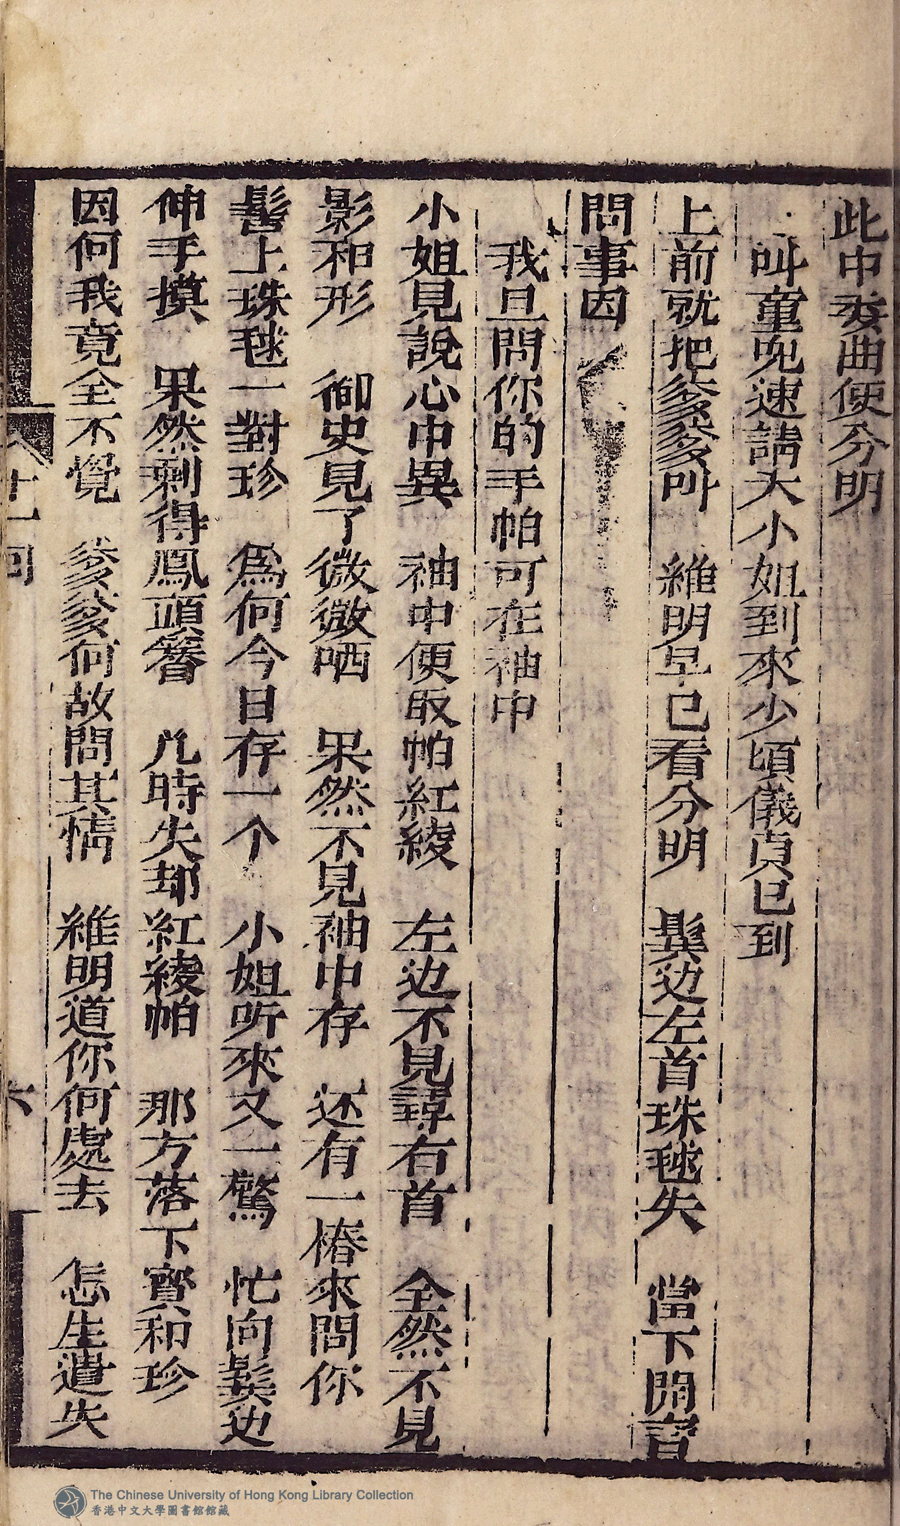 此中委曲便分明
叫童児速請大小姐到來少頃儀貞已到
上前就把爹爹叫 維明早已看分明 鬓边左首珠毬失 當下開言
問事因
我且問你的手帕可在袖中
小姐見說心中異 袖中便取帕紅綾 左边不見尋右首 全然不見
影和形 御史見了微微哂 果然不見袖中存 还有一樁來問你
髻上珠毬一對珍 為何今日存一个 小姐听來又一驚 忙向鬓边
伸手摸 果然剩得鳳頭簪 几時失却紅綾帕 那方落下寳和珍
因何我竟全不覺 爹爹何故問其情 維明道你何處去 怎生遺失
十一回
六
The Chinese University of Hong Kong Library Collection
香港中文大學圖書館館藏